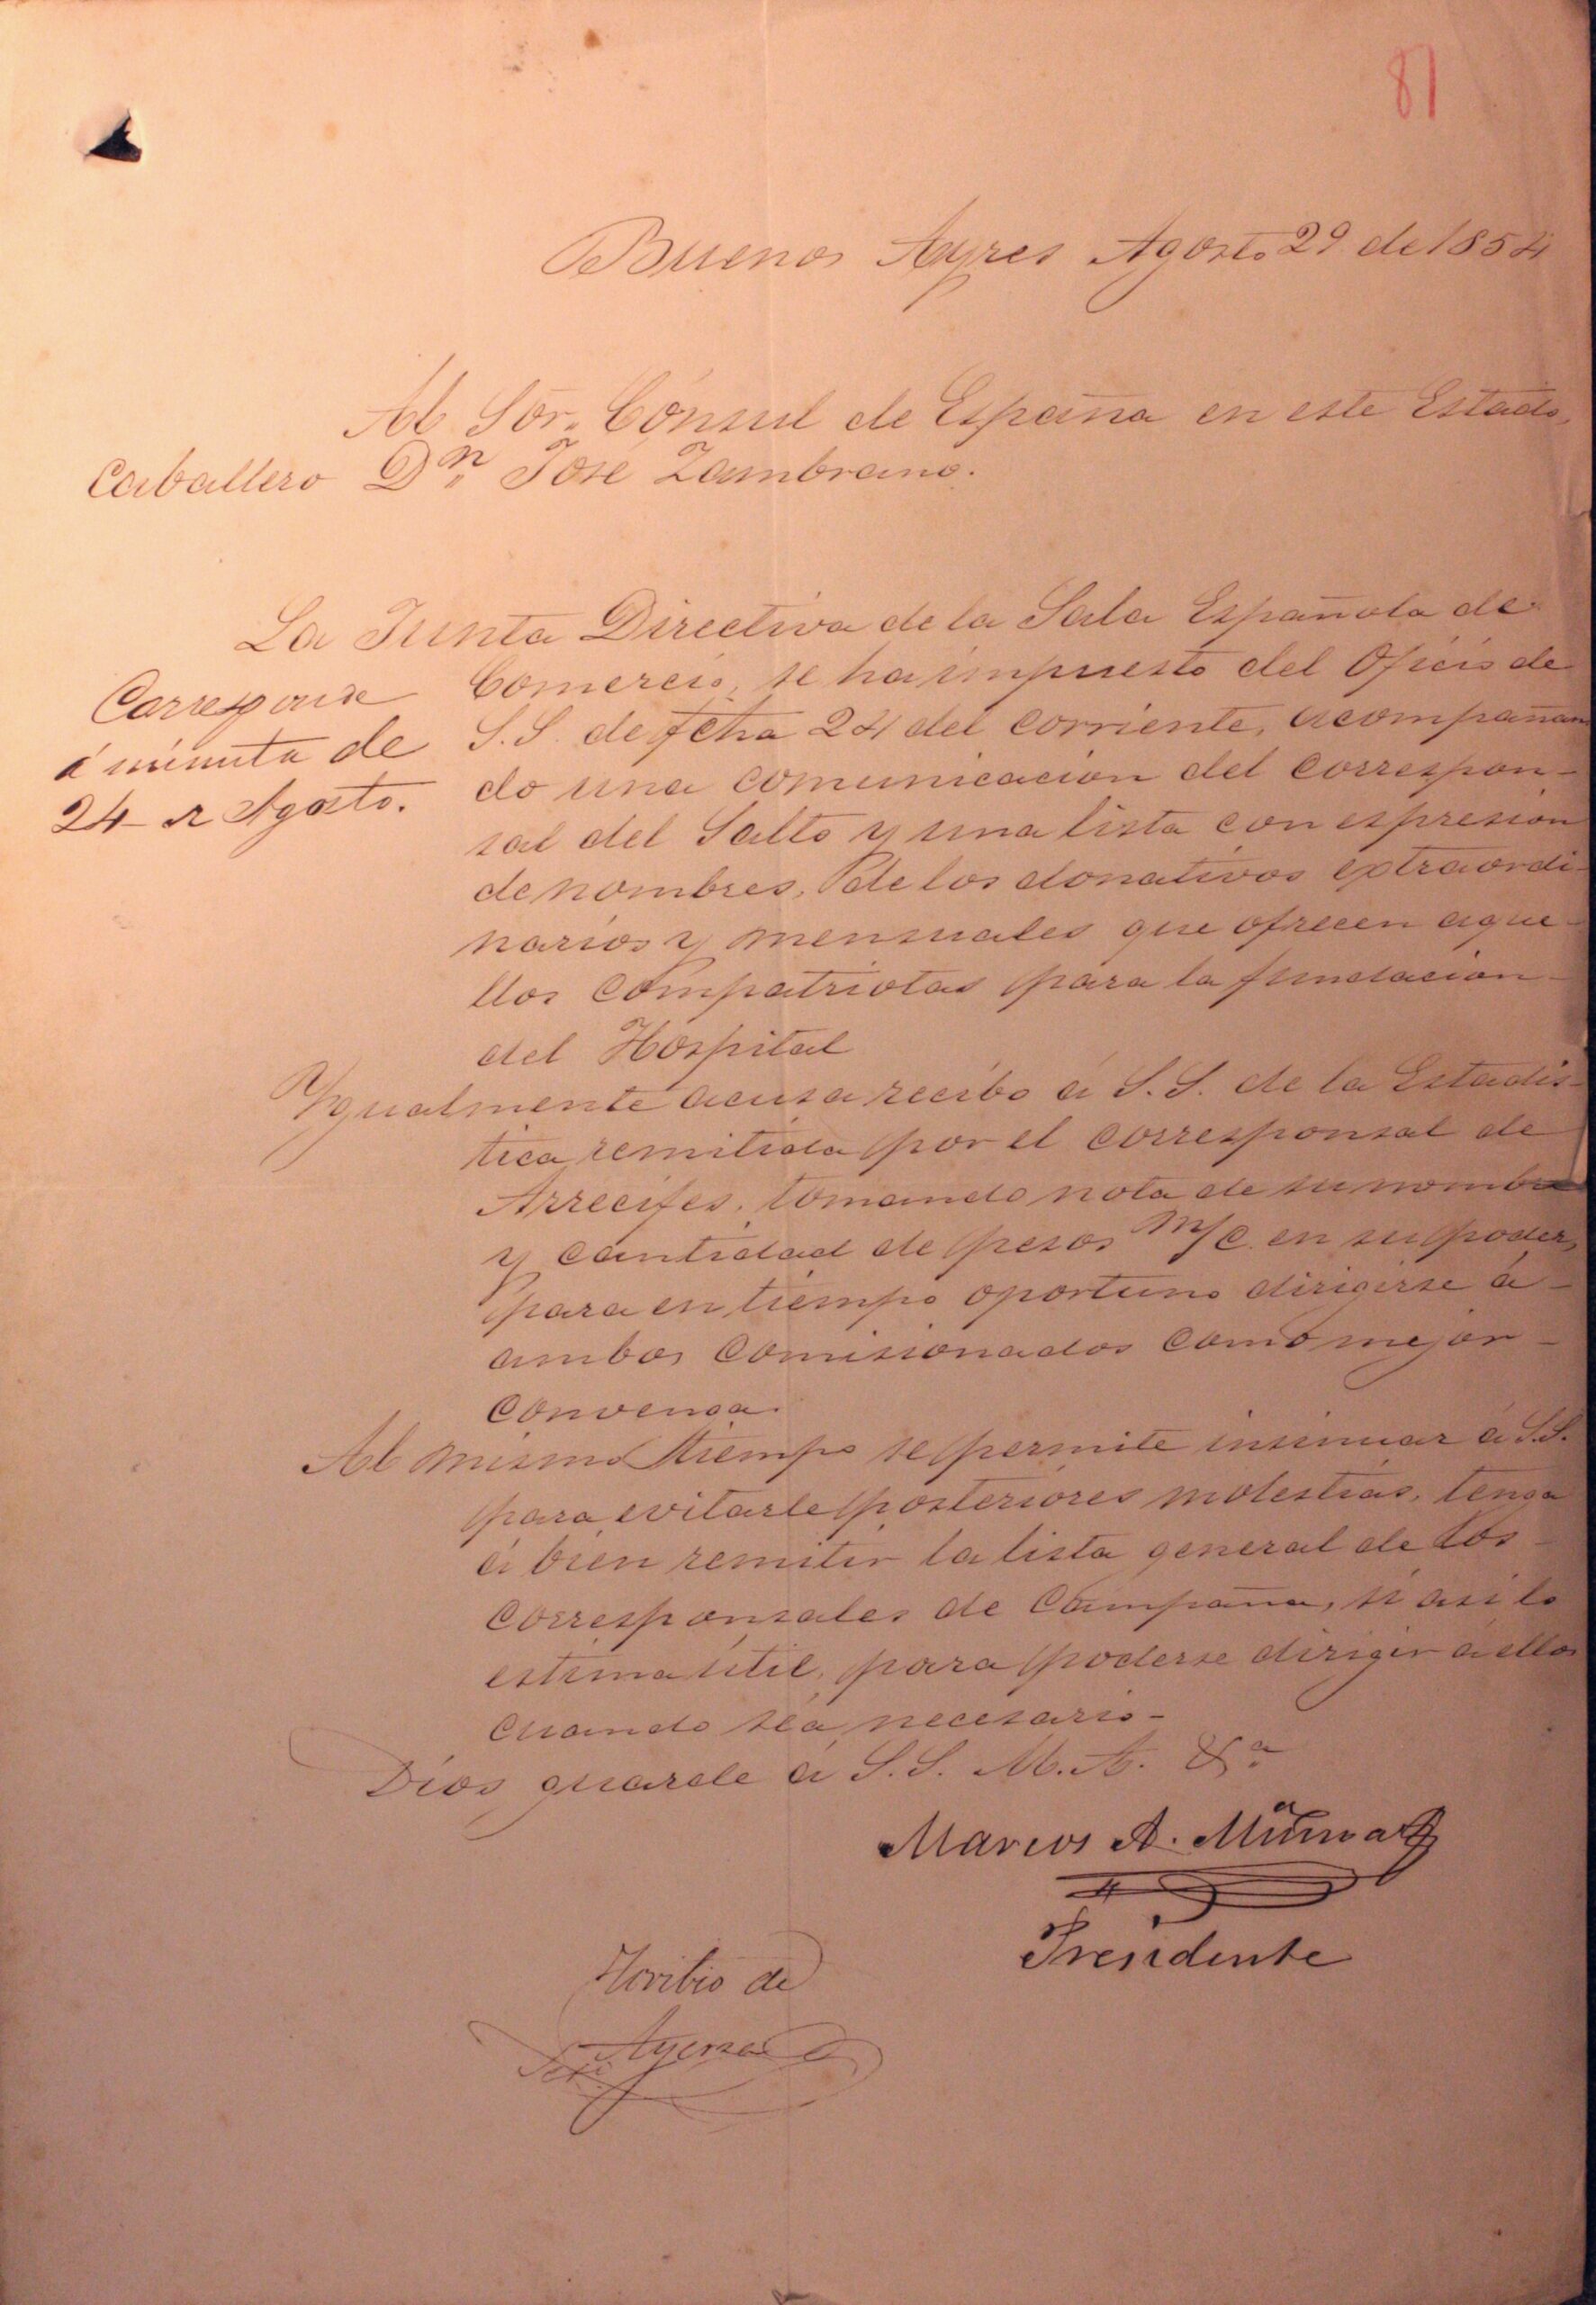 81
Buenos Ayres Agosto 29 de 1854
Al Sor. Cónsul de España en este Estado,
Caballero Dn. José Zambrano.
La Junta Directiva de la Sala Española de
Comercio, se ha impuesto del Oficio de
S.S. de fcha 24 del corriente, acompañan
do una comunicacion del correspon-
sal del Salto y una lista con espresion
de nombres, de los donativos extraordi-
narios y mensuales que ofrecen aque-
llos compatriotas para la fundacion
del Hospital
Corresponde
á minuta de
24 de Agosto.
Ygualmente acusa recibo á S.S. de la Estadis-
tica remitida por el corresponsal de
Arrecifes, tomando nota de su nombre
y cantidad de pesos m/c. en su poder,
para en tiempo oportuno dirigirse á
ambos comisionados como mejor
convenga.
Al mismo tiempo se permite insinuar á S.S.
para evitarle posteriores molestias, tenga
á bien remitir la lista general de los
corresponsales de Campaña, si asi lo
estima util, para poderse dirigir á ellos
cuando sea necesario-
Dios guarde á S.S. M. A. &a
Marcos A. Muñoa
Presidente
Toribio de
Ayerza